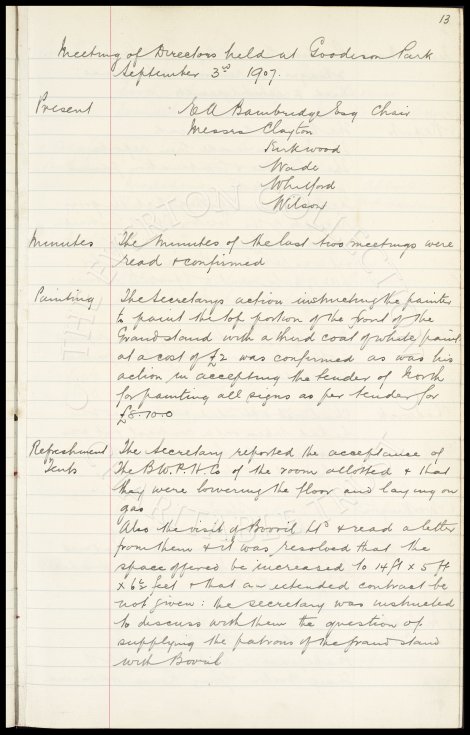 13
Meeting of Directors held at Goodison Park
September 3rd 1907.
Present E A Bainbridge Esq Chair
Messrs Clayton
Kirkwood
Wade
Whitford
Wilson
Minutes The minutes of the last two meetings were
read & confirmed
Painting The Secretarys action instructing the painter
to paint the top portion of the front of the
Grandstand with a third coat of white paint
at a cost of £2 was confirmed as was his
action in accepting the tender of North
for painting all signs as per tender for
£8.10.0
Refreshment Tents The Secretary reported the acceptance of
the B.W.P.H Co of the room allotted & that
they were lowering the floor and laying on
gas
Also the visit of Bovril Ltd & read a letter
from them & it was resolved that the
space offered be increased to 14 ft x 5 ft
x 6½ feet & that an extended contract be
not given: the secretary was instructed
to discuss with them the question of
supplying the patrons of the grand stand
with Bovril
THE EVERTON COLLECTION